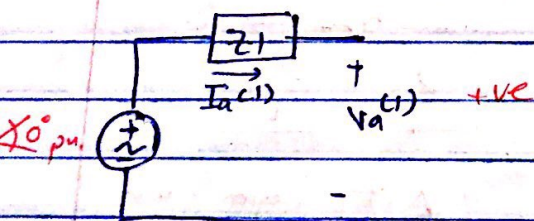 Z1
Ia(1)
+
Va(1)
+ve
∠0° pu.
+
-